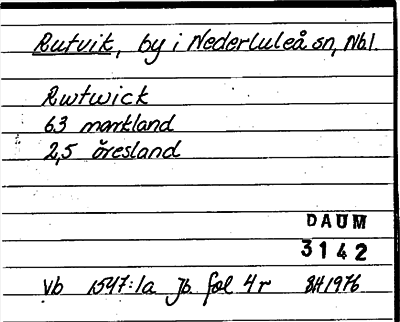 Rutvik, by i Nederluleå sn, Nbl.
Rwtwick
63 markland
2,5 öresland
DAUM
3142
Vb 1547:1a Jb. fol 4r BH 1976